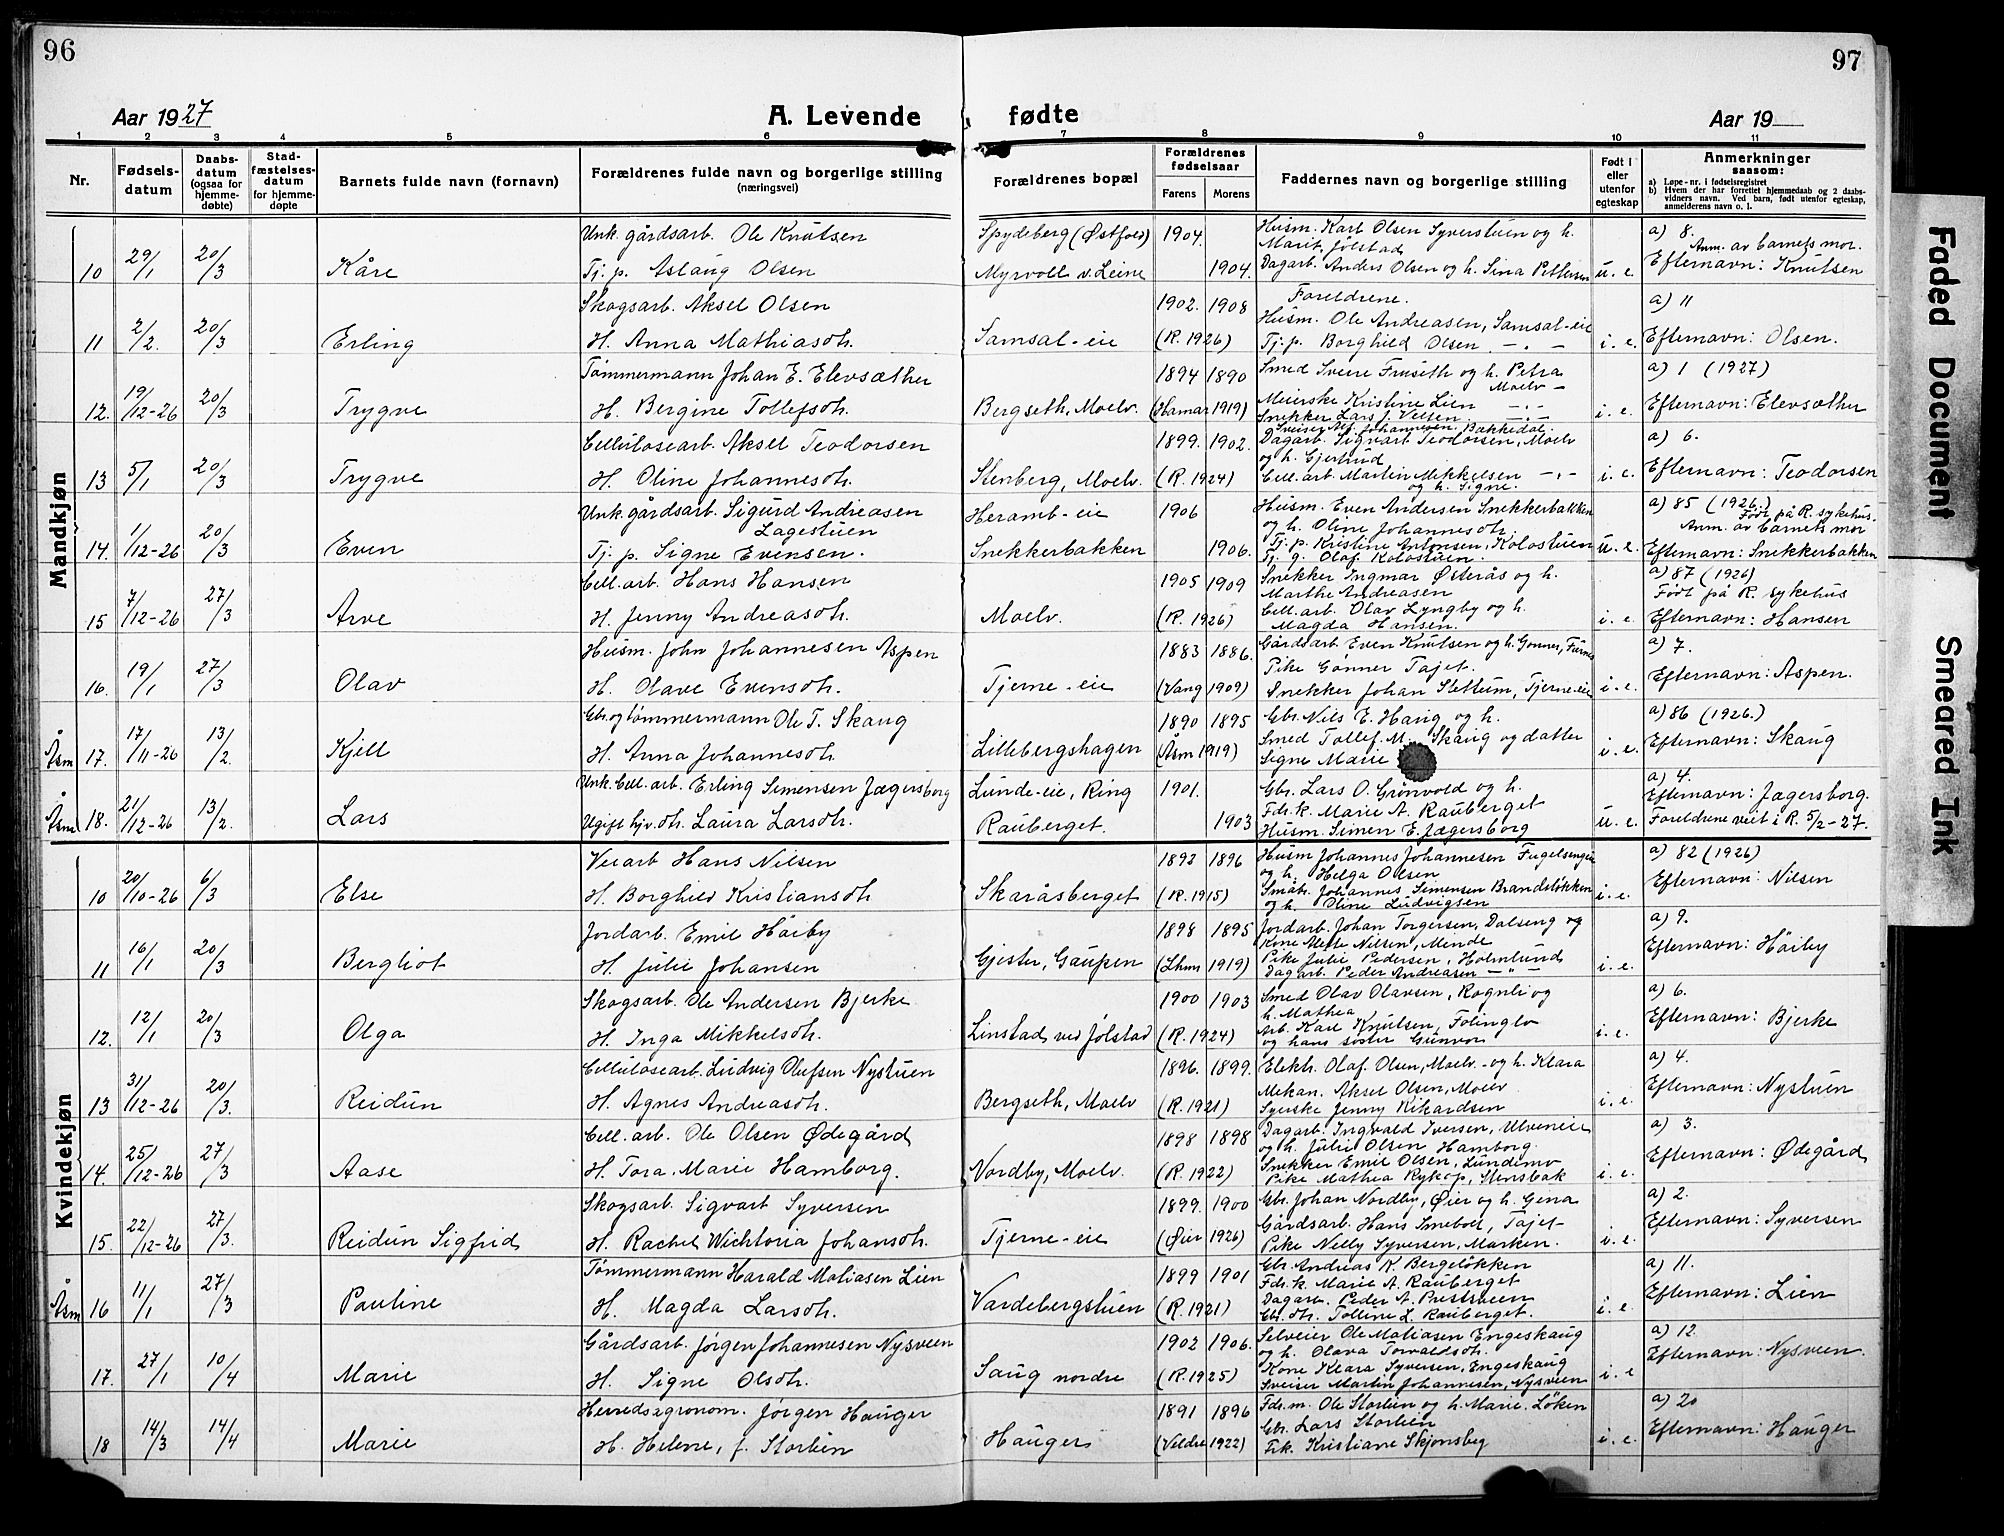 96
97
Aar 1927
A. Levende
fødte
Aar 19
1 2 3 4 5 6 7 8 9 10 11
Nr.
Fødsels-datum
Daabs-datum (ogsaa for hjemme-døbte)
Stad-fæstelses-datum for hjemme-døpte
Barnets fulde navn (fornavn)
Forældrenes fulde navn og borgerlige stilling (næringsvei)
Forældrenes bopæl
Forældrenes fødselsaar
Farens Morens
Faddernes navn og borgerlige stilling
Født i eller utenfor egteskap
Anmerkninger saasom:
a) Løpe-nr. i fødselsregistret
b) Hvem der har forrettet hjemmedaab og 2 daabs-vidners navn. Ved barn, født utenfor egteskap, anmelderens navn o. l.
Mandkjøn
Unk. gårdsarb. Ole Knutsen Spydeberg (Østfold) 1904. Husm. Karl Olsen Syverstuen og h. a) 8.
Marit, Jølstad Anm. av barnets mor.
10 29/1 20/3 Kåre Tj. p. Aslaug Olsen Myrvold v. Leine 1904. Dagarb. Anders Olsen og h. Sina Pettersen u. e. Efternavn: Knutsen
Skogsarb. Aksel Olsen 1902. 1908 Foreldrene. a) 11
Husm. Ole Andreasen, Samsal-eie
11 2/2. 20/3 Erling H. Anna Mathiasdtr. Samsal-eie (R. 1926) Tj. p. Borghild Olsen i. e. Efternavn: Olsen.
Tømmermann Johan E. Elevsæther 1894 1890 Smed Sverre Fruseth og h. Petra a) 1 (1927)
Moelv
12. 19/12-26 20/3 Trygve H. Bergine Tollefsdtr. Bergseth, Moelv. (Hamar 1919) Meierske Kristine Lien i. e. Efternavn: Elevsæther
Snekker Lars J. Velsen
Celluloseearb. Aksel Teodorsen 1899. 1902. Dagarb. Sigvart Teodorsen, Moelv a) 6.
og h. Gjertrud
13 5/1 20/3 Trygve H. Oline Johannesdtr. Stenberg, Moelv. (R. 1924) Cell. arb. Martin Mikkelsen i. e. Efternavn: Teodorsen
og h. Signe.
Unk. gårdsarb. Sigurd Andreasen Heramb-eie 1906 Husm. Even Andersen Snekkerbakken a) 85 (1926.)
Lagestuen og h. Oline Johannesdtr. Født på R. sykehus.
Anm. av barnets mor
14. 1/12-26 20/3 Even Tj. p. Signe Evensen. Snekkerbakken 1906. Tj. p. Kristine Antonsen, Kolostuen u. e. Efternavn: Snekkerbakken
Tj. g. Olaf Kolostuen.
Cell. arb. Hans Hansen 1905 1909 Snekker Ingmar Østerås og h. a) 87 (1926)
Marthe Andreasen Født på R. sykehus
15 7/12-26 27/3 Arve H. Jenny Andreasdtr. Moelv. (R. 1926) Cell. arb. Olav Lyngby og h. i. e. Efternavn: Hansen
Magda Hansen.
Husm. John Johannesen Aspen 1883 1886. Gårdsarb. Even Knutsen og h. Gonner, Furnes a) 7.
Pike Gønner Tajet.
16. 19/1 27/3 Olav H. Olave Evensdtr. Tjerne-eie (Vang 1909) Snekker Johan Slettum, Tjerne-eie i. e. Efternavn: Aspen.
Gbr. og tømmermann Ole T. Skaug 1890 1895 Gbr. Nils E. Haug og h. a) 86 (1926.)
Åsm 17. 17/11-26 13/2. Kjell H. Anna Johannesdtr. Lillebergshagen (Åsm 1919) Smed Tollef M. Skaug og datter i. e. Efternavn: Skaug
Signe Marie
Unk. Cell. arb. Erling Simensen Jægersborg Lunde-eie, Ring 1901. Gbr. Lars O. Grønvold og h. a) 4.
Fdr. k. Marie A. Rauberget Efternavn: Jægersborg.
Åsm 18. 21/12-26 13/2. Lars Ugift hjv. dtr. Laura Larsdtr. Rauberget. 1903 Husm. Simen E. Jægersborg u. e. Foreldrene viet i R. 5/2-27.
Kvindekjøn
Veiarb Hans Nilsen 1892 1896 Husm Johannes Johannesen Fugelsengen a) 82 (1926)
og h. Helga Olsen
10 20/10-26 6/3 Else H. Borghild Kristiansdtr Skaråsberget (R. 1915) Småbr. Johannes Simensen Brandeløkken i. e. Efternavn: Nilsen
og h. Oline Ludvigsen
Jordarb. Emil Høiby 1898 1895 Jordarb. Johan Torgersen, Dalseng og a) 9.
Kone Mette Nilsen, Mende
11 16/1 20/3 Bergliot H. Julie Johansen Gjester, Gaupen (Lhm 1919) Pike Julie Pedersen, Holmlund i. e. Efternavn: Høiby
Dagarb. Peder Andreasen
Skogsarb. Ole Andersen Bjerke 1900 1903 Smed Olav Olavsen, Rognli og a) 6.
h. Mathea
12. 12/1 20/3 Olga H. Inga Mikkelsdtr. Linstad ved Jølstad (R. 1924) Arb. Karl Knutsen, Følinglo i. e. Efternavn: Bjerke
og hans søster Gunvor
Celluloseearb. Ludvig Olufsen Nystuen 1896. 1899. Elektr. Olaf Olsen, Moelv. og h. Klara a) 4.
Mekan. Aksel Olsen, Moelv.
13 31/12-26 20/3. Reidun H. Agnes Andreasdtr. Bergseth, Moelv (R. 1921) Syerske Jenny Rikardsen i. e. Efternavn: Nystuen
Cell. arb. Ole Olsen Ødegård 1898 1898 Dagarb. Ingvald Iversen, Ulveneie a) 3.
og h. Julie Olsen Hamborg.
14. 25/12-26 27/3 Aase H. Tora Marie Hamborg. Nordby, Moelv. (R. 1922) Snekker Emil Olsen, Lundemo i. e. Efternavn: Ødegård
Pike Mathea Rykop, Stensbak
Skogsarb. Sigvart Syversen 1899. 1900 Gbr. Johan Nordby, Øier og h. Gina a) 2.
Gårdsarb. Hans Smebøl, Tajet
15. 22/12-26 27/3. Reidun Sigfrid H. Rachel Wichtoria Johansdtr. Tjerne-eie (Øier 1926) Pike Nelly Syversen, Marken. i. e. Efternavn: Syversen
Tømmermann Harald Matiasen Lien 1899 1901 Gbr. Andreas K. Bergeløkken a) 11.
Fdr. k. Marie A. Rauberget
Åsm 16 11/1 27/3 Pauline H. Magda Larsdtr. Vardebergstuen (R. 1921) Dagarb. Peder A. Prestsveen i. e. Efternavn: Lien
Gbr. dtr. Tolline L. Rauberget.
Gårdsarb. Jørgen Johannesen Nysveen 1902 1906. Selveier Ole Matiasen Engeskaug a) 12.
og h. Olava Torvaldsdtr.
17. 27/1 10/4 Marie H. Signe Olsdtr. Saug nordre (R. 1925) Kone Klara Syversen, Engeskaug i. e Efternavn: Nysveen.
Sveiser Martin Johannesen, Nysveen
Herredsagronom. Jørgen Hauger 1891 1896 Fdr. m. Ole Storlien og h. Marie. Løken a) 20
Gbr. Lars Storlien
18 14/3 14/4 Marie H. Helene, f. Storlien Haugers (Veldre 1922) Frk. Kristiane Skjønsby i. e. Efternavn: Hauger
Faded Document
Smeared Ink